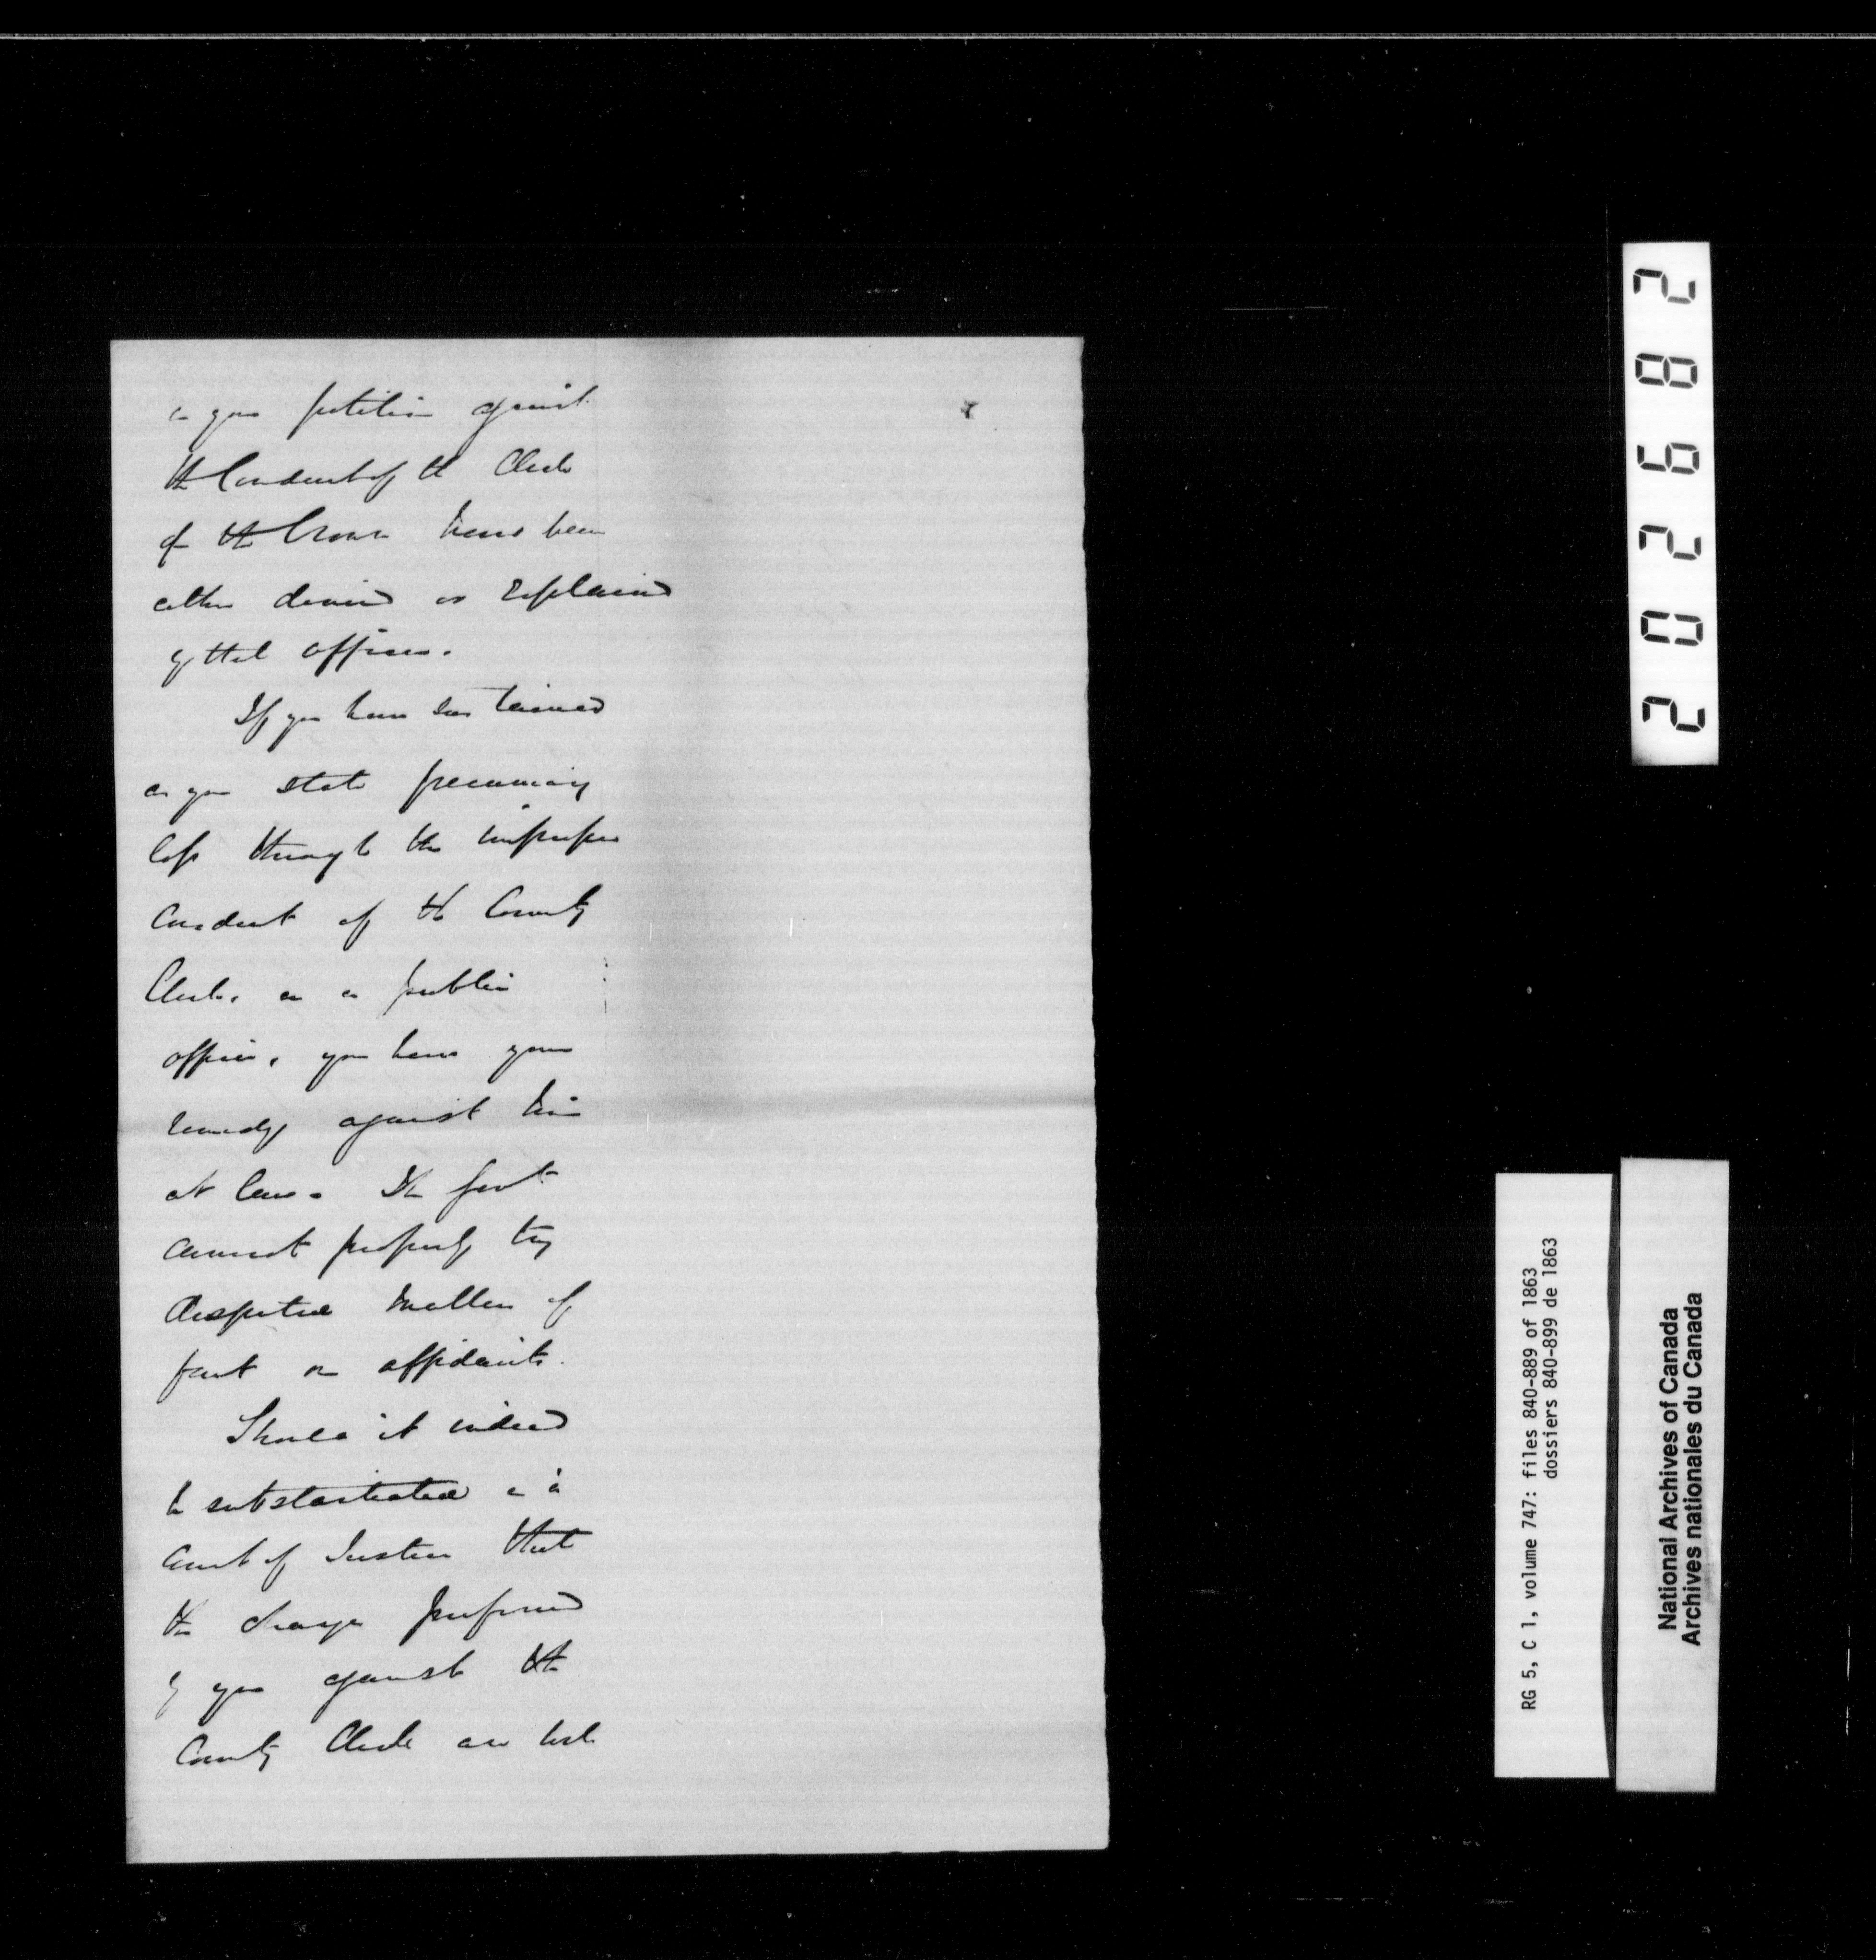 in your petition against
the Conduct of the Clerk
of the Crown have been
either denied or Explained
by that officer.
If you have sustained
as you state pecuniary
loss through the improper
Conduct of the County
Clerk, as a public
officer, you have your
remedy against him
at law. The Govt
cannot properly try
disputed matters of
fact on affidavits.
Should it indeed
be substantiated in a
Court of Justice that
the charges preferred
by you against the
County Clerk are well
202682
RG 5, C 1, volume 747: files 840-889 of 1863
dossiers 840-899 de 1863
National Archives of Canada
Archives nationales du Canada